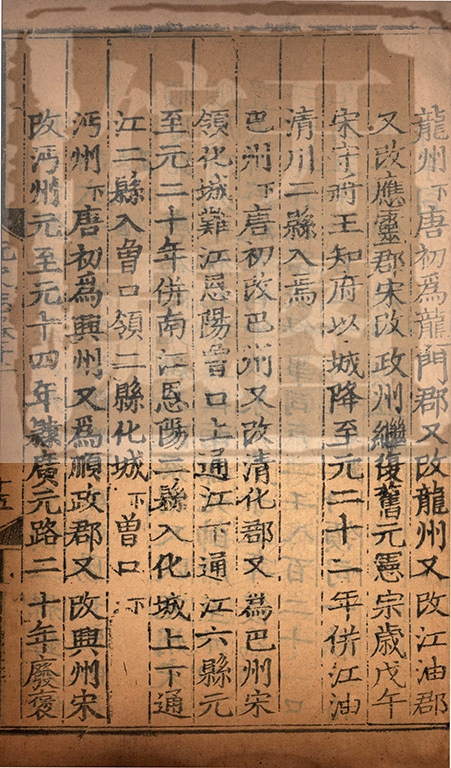 龍州下唐初爲龍門郡又改龍州又改江油郡
又改應靈郡宋改政州繼復舊元憲宗歲戊午
宋守將王知府以城降至元二十二年併江油
清川二縣入焉
巴州下唐初改巴州又改清化郡又爲巴州宋
領化城難江恩陽曾口上通江下通江六縣元
至元二十年併南江恩陽二縣入化城上下通
江二縣入曾口領二縣化城下曾口下
沔州下唐初爲興州又爲順政郡又改興州宋
改沔州元至元十四年隸廣元路二十年廢褒
十五